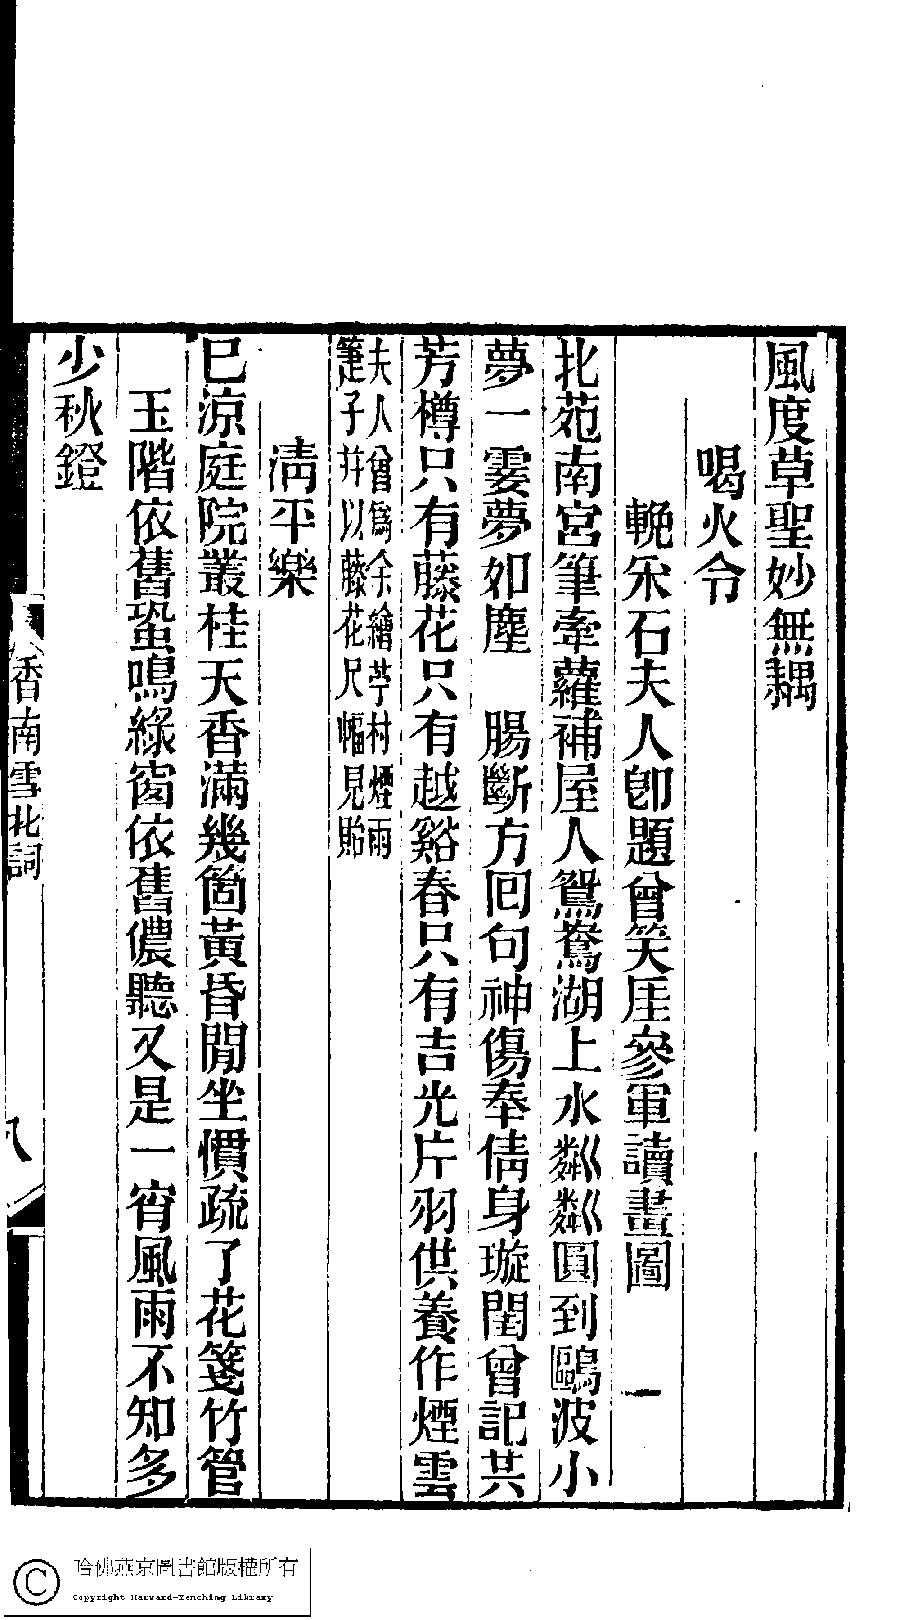 風度草聖妙無耦
喝火令
輓宋石夫人卽題曾笑厓參軍讀畫圖
北苑南宮筆牽蘿補屋人鴛鴦湖上水粼粼圓到鷗波小
夢一霎夢如塵　腸斷方回句神傷奉倩身璇閨曾記共
芳樽只有藤花只有越谿春只有吉光片羽供養作煙雲
夫人曾爲余繪苧村煙雨
箑子并以藤花尺幅見貽
淸平樂
巳涼庭院叢桂天香滿幾箇黃昏閒坐慣疏了花箋竹管
玉階依舊蛩鳴綠窗依舊儂聽又是一宵風雨不知多
少秋鐙
香南雪北詞
八
哈佛燕京圖書館版權所有
Copyright Harvard-Yenching Library